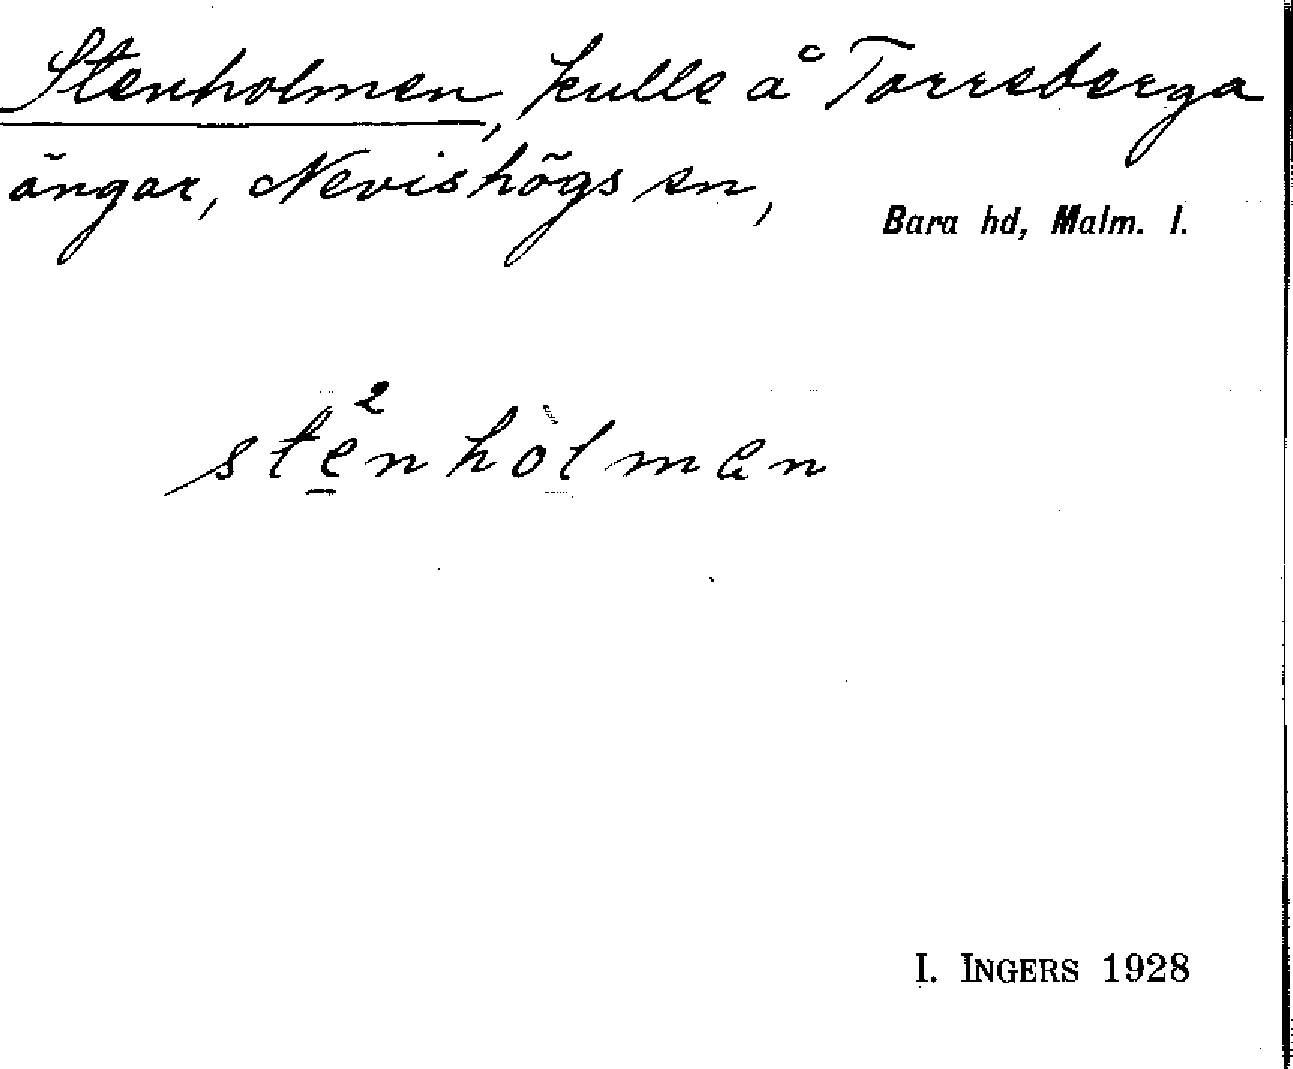 Stenholmen, kulle å Torreberga
ängar, Nevishögs sn,
Bara hd, Malm. l.
stẹ²nhòlman
I. INGERS 1928